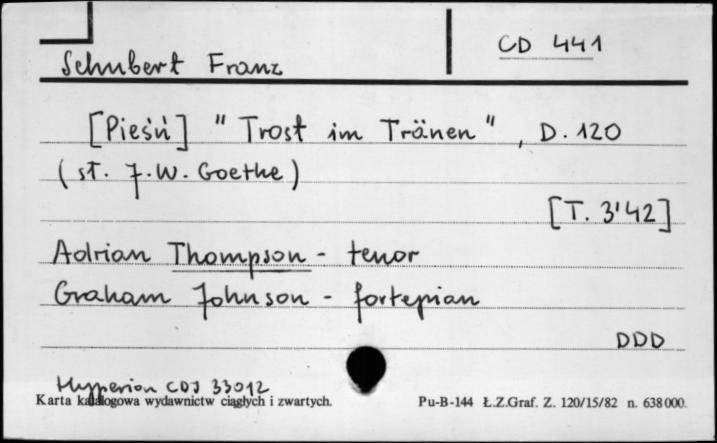 Schubert Franz
CD 441
[Pieśń] "Trost im Tränen", D. 120
(sł. J. W. Goethe)
[T. 3'42]
Adrian Thompson - tenor
Graham Johnson - fortepian
DDD
Hyperion CDJ 33012
Karta katalogowa wydawnictw ciągłych i zwartych.
Pu-B-144 Ł.Z.Graf. Z. 120/15/82 n. 638000.